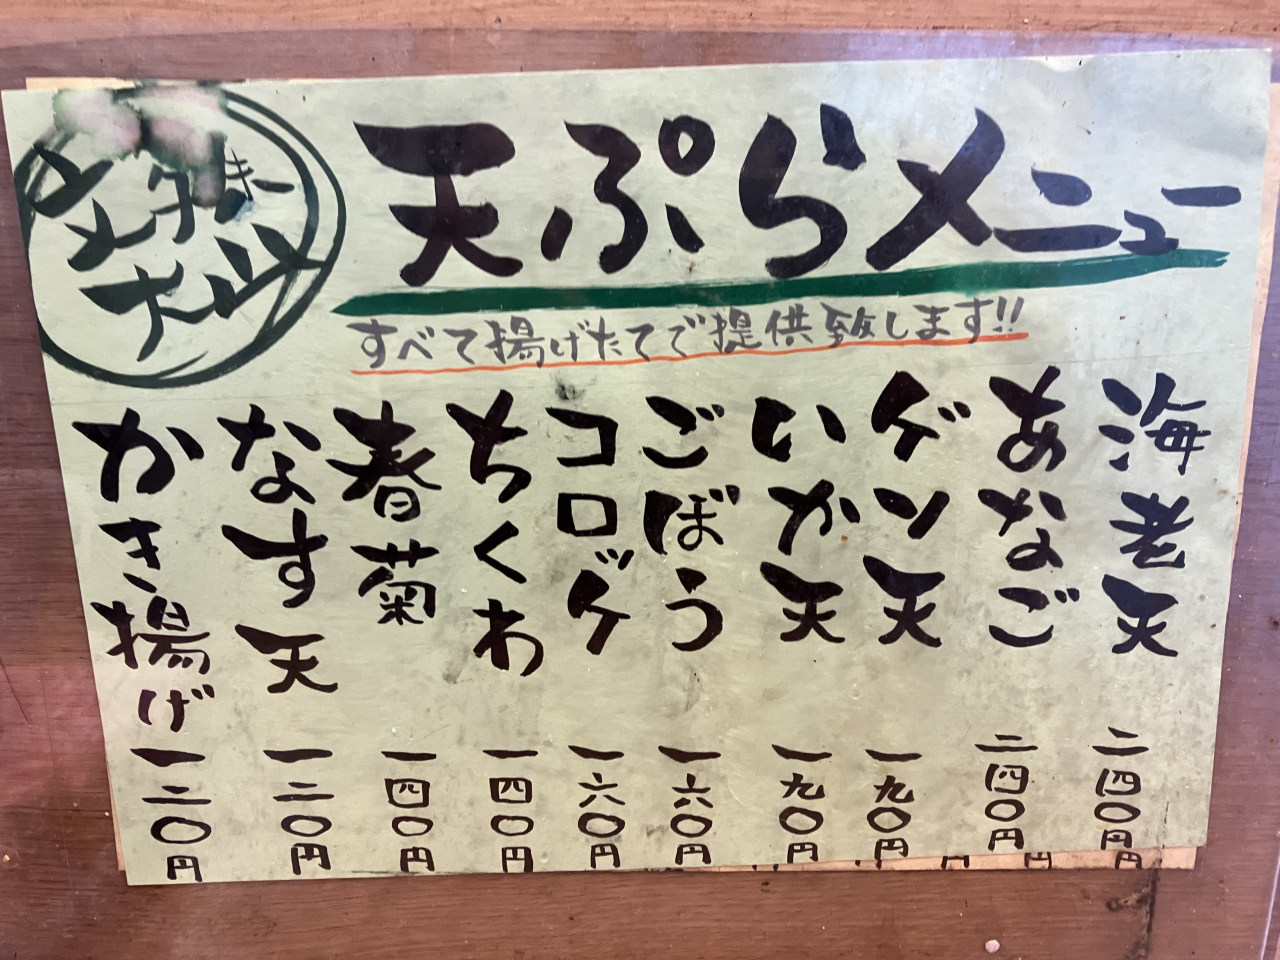 天ぷらメニュー
すべて揚げたてで提供致します!!
海老天 二四〇円
あなご 二四〇円
ゲソ天 一九〇円
いか天 一九〇円
ごぼう 一六〇円
コロッケ 一六〇円
ちくわ 一四〇円
春菊 一四〇円
なす天 一二〇円
かき揚げ 一二〇円